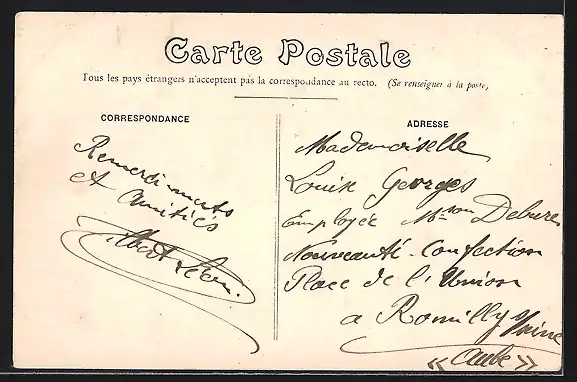 Carte Postale
Tous les pays étrangers n'acceptent pas la correspondance au recto. (Se renseigner à la poste)
CORRESPONDANCE
ADRESSE
Remerciements
et Amitiés
Albert
Mademoiselle
Louise Georges
Employée Mson Debure
Nouveauté-Confection
Place de l'Union
a Romilly s/Seine
« Aube »